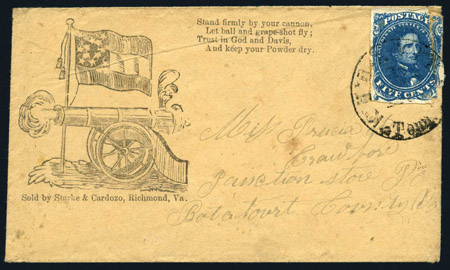 Stand firmly by your cannon,
Let ball and grape-shot fly;
Trust in God and Davis,
And keep your Powder dry.
POSTAGE
FIVE CENTS
Sold by Starke & Cardozo, Richmond, Va.
Miss
Junction Store P.O.
Botetourt County Va